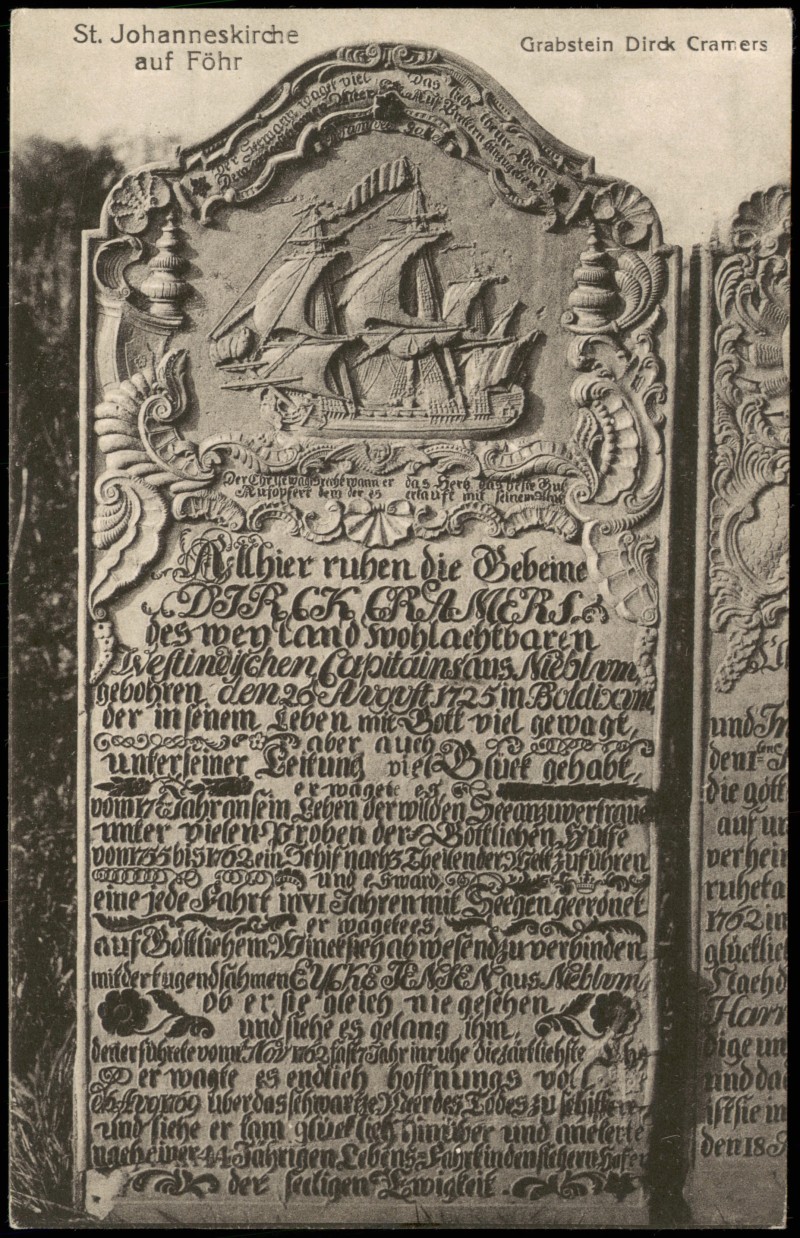 St. Johanneskirche
auf Föhr
Grabstein Dirck Cramers
Der Seemann waget viel
Das Liebe theure Leben
Der Christ wagts reiche wann er das Hertz das beste Gut
Aufopfert dem der es erkauft mit seinem Blut
Allhier ruhen die Gebeine
DIRCK CRAMERS.
des weyland wohlachtbaren
Westindischen Capitains aus Nieblum,
gebohren den 26 August 1725 in Boldixum,
der in senem Leben mit Gott viel gewagt,
aber auch
unter seiner Leitung viel Glück gehabt,
er wagete es,
vom 17 Jahr an sein Leben der wilden See anzuvertrauen
unter vielen Proben der Göttlichen Hülfe
vom 1755 bis 1762 ein Schif nach 3 Theilen der Welt zu führen
und es ward,
eine jede Fahrt in VI Jahren mit Seegen geerönet
er wagete es,
auf Göttlichem Winck sich abwesend zu verbinden
mit der tugendsahmen EYCKE JENSEN aus Nieblum,
ob er sie gleich nie gesehen
und siehe es gelang ihm,
denn er führete vom Nov 1762 fast 7 Jahr in ruhe die zärtlichste Ehe
er wagte es endlich hoffnungs voll
Aug 1769 über das schwartze Meer des Todes zu schiffen
und siehe er kam glücklich hinüber und anckerte
nach einer 44 Jährigen Lebens=Fahrt in den sichern Hafen
der seeligen Ewigkeit.
und
den 1
die gött
auf
verhei
ruhet a
1762 in
glücklic
Nach d
Harr
dige un
und da
ist sie in
den 18